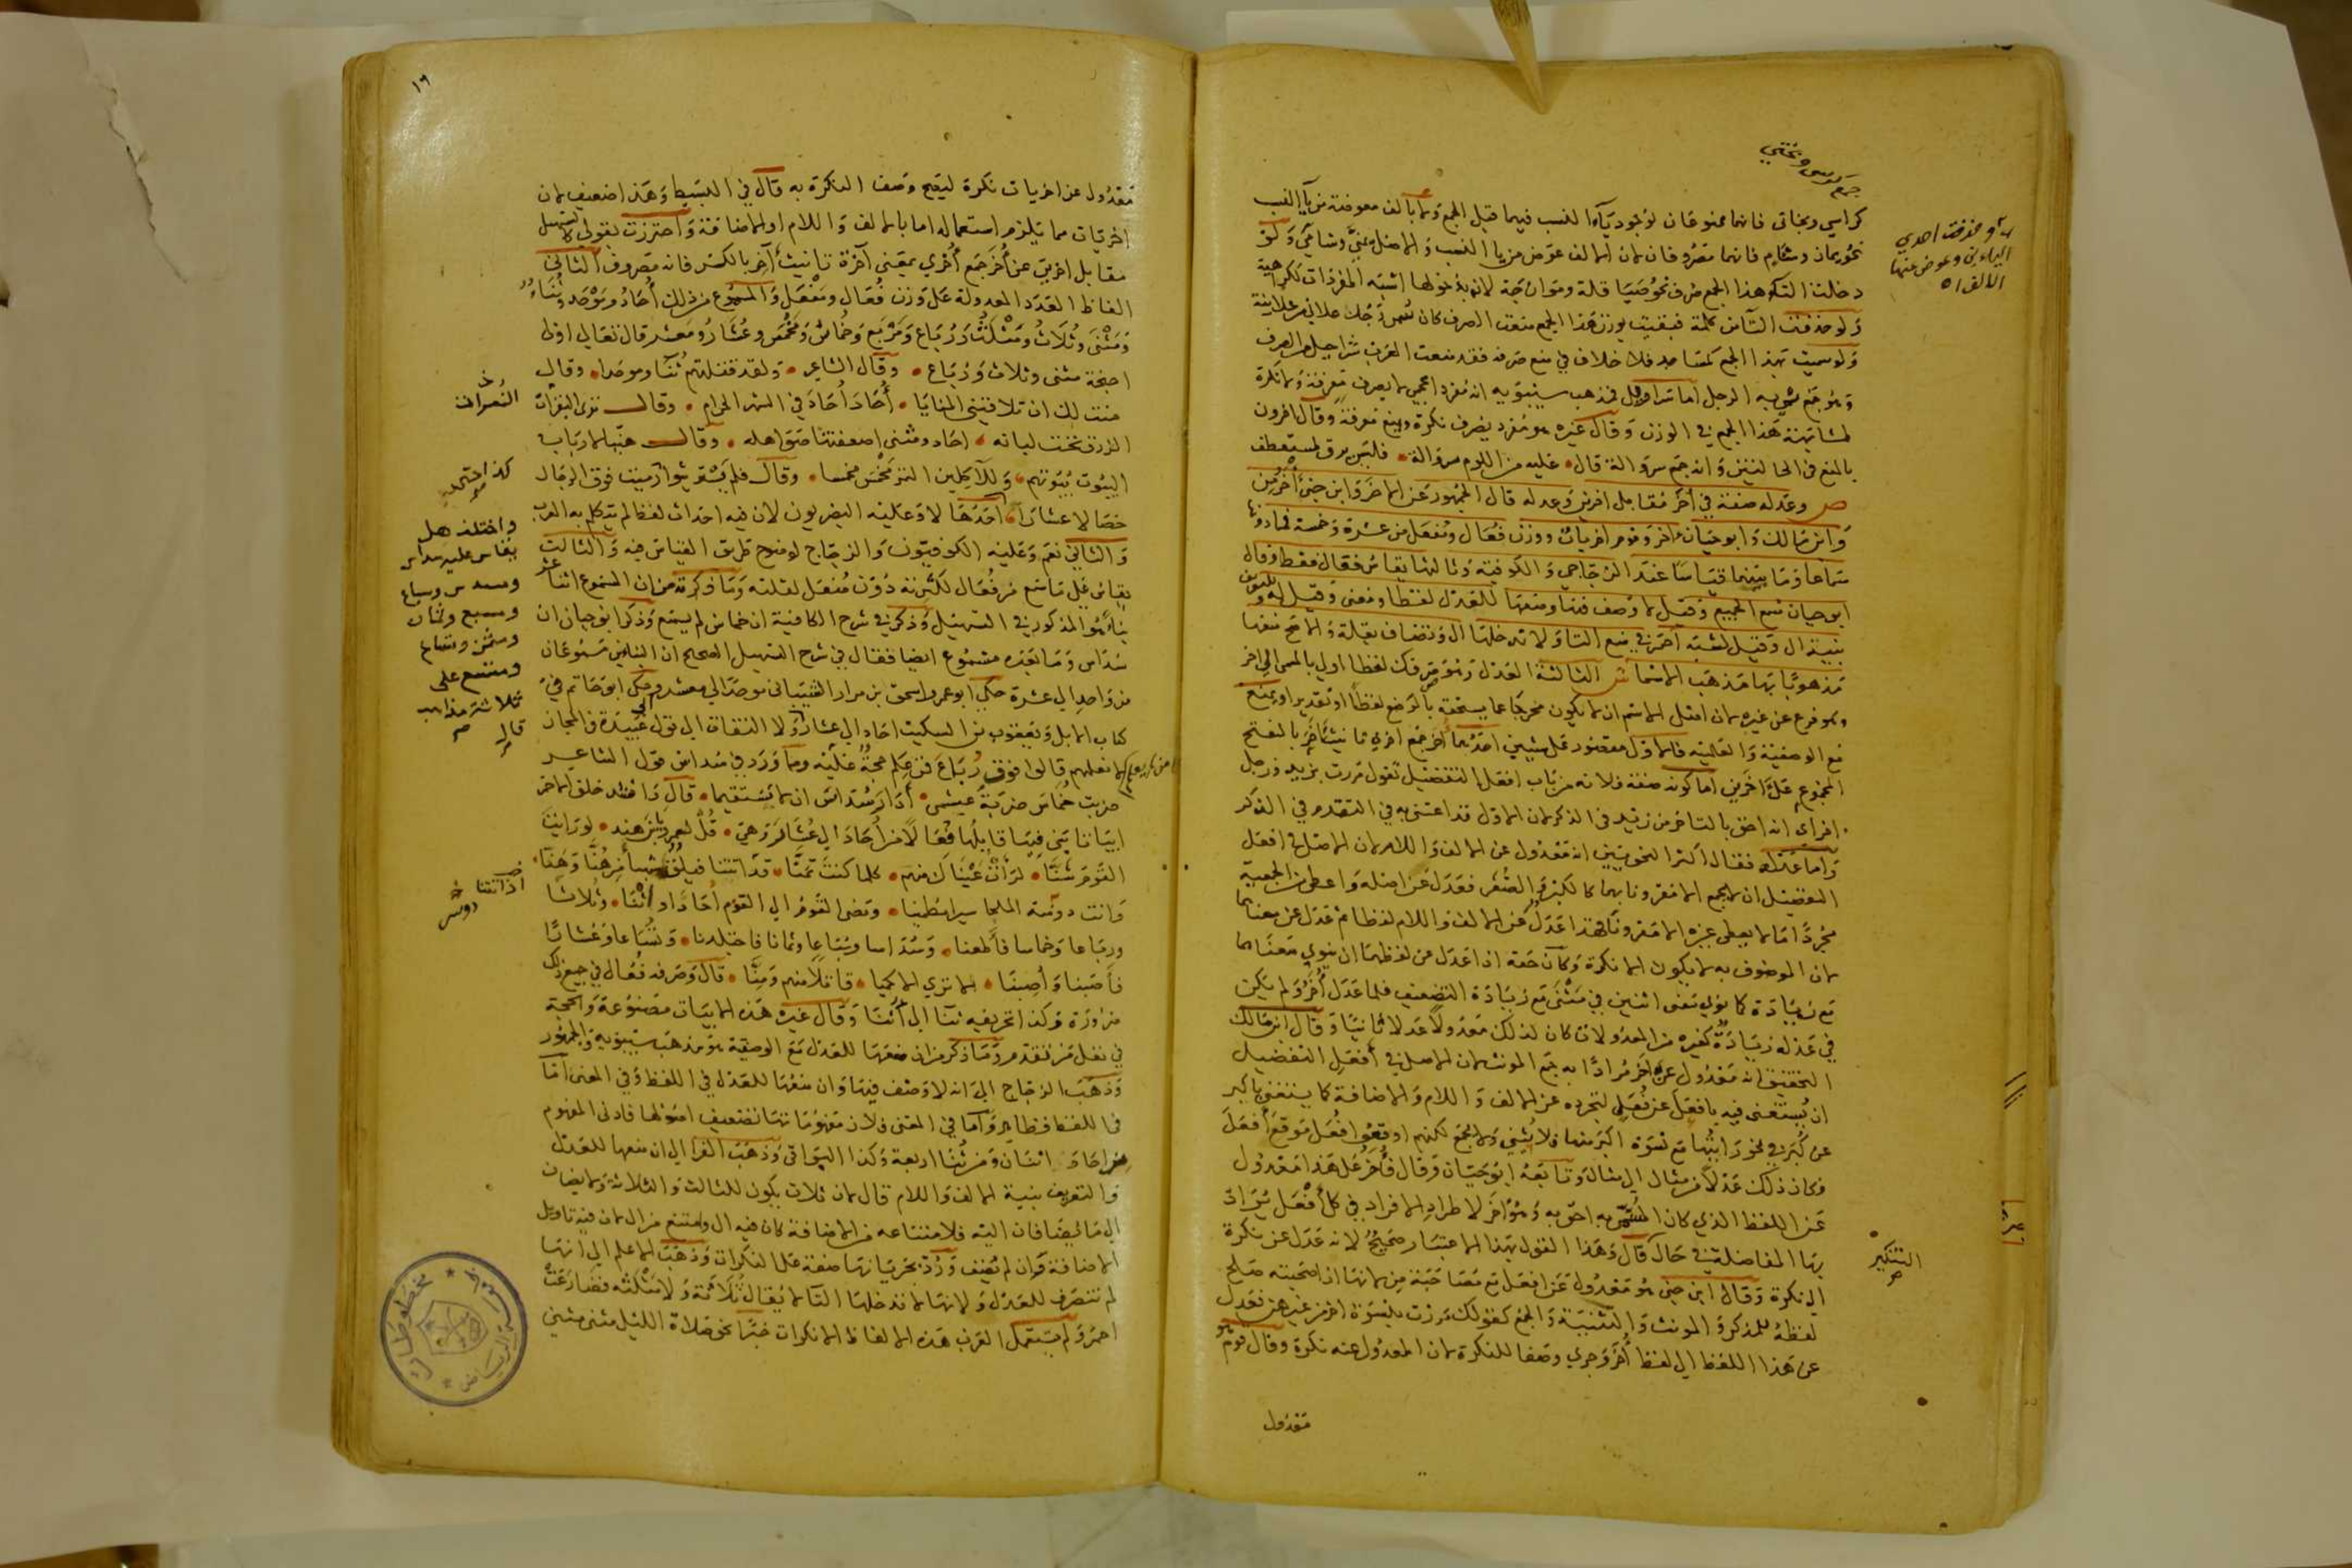 جمع كرسي وبختي
كراسي وبخاتي فانهما ممنوعان لوجود ياء النسب فيهما قبل الجمع ولا بالف معوضة من يا النسب
نحو يمان وشام فانهما مصروفان لان الالف عوض من يا النسب والاصل يمني وشامي ولو
دخلت التا هذا الجمع صرف نحو صياقلة وموازجة لانه بدخولها اشبه المفردات ككراهية
ولو حذفت التا من كلمة فبقيت بوزن هذا الجمع منعت الصرف كان تسمى رجلا علاني من علانية
ولو سميت بهذا الجمع كمساجد فلا خلاف في منع صرفه فقد منعت العرب شراحيل من الصرف
وهو جمع سمي به الرجل اما سراويل فمذهب سيبويه انه مفرد اعجمي لا يصرف معرفة ولا نكرة
لمشابهته هذا الجمع في الوزن وقال غيره هو مفرد يصرف نكرة ويمنع معرفة وقال اخرون
بالمنع في الحالتين وانه جمع سروالة قال عليه من اللوم سروالة فليس يرق لمستعطف
ص وعدله صفة في اخر مقابل اخرين وعدله قال الجمهور عن الاخر وابن جني اخر من
وابن مالك وابو حيان اخر وقوم اخريات ووزن فعال ومفعل من عشرة وخمسة فما دونها
سماعا وما بينهما قياسا عند الزجاجي والكوفية وثالثها يقاس فعال فقط وقال
ابو حيان سمع الجميع وقيل لا وصف فيها ومنعها للعدل لفظا ومعنى وقيل له وللتعريف
بنية ال وقيل لشبه احمر في منع التا ولا تدخلها ال وتضاف بقلة والاصح منعها
مذهوبا بها مذهب الاسما ش الثالثة العدل وهو صرفك لفظا اولى بالمسمى الى اخر
وهو فرع عن غيره لان اصل الاسم ان لا يكون مخرجا عما يستحقه بالوضع لفظا او تقديرا ويمنع
مع الوصفية والعلمية فالاول مقصور على شيئين احدهما اخر جمع اخري تانيث اخر بالفتح
المجموع على اخرين اما كونه صفة فلانه من باب افعل التفضيل تقول مررت بزيد ورجل
اخر اي انه احق بالتاخر من زيد في الذكر لان الاول قد اعتنى به في التقدم في الذكر
واما عدله فقال اكثر النحويين انه معدول عن الالف واللام لان الاصل في افعل
التفضيل ان لا يجمع الا مقرونا بهما كالكبر والصغر فعدل عن اصله واعطي من الجمعية
مجردا ما لا يعطي غيره الا مقرونا فهذا عدل عن الالف واللام لفظا ثم عدل عن معناهما
لان الموصوف به لا يكون الا نكرة وكان حقه اذا عدل عن لفظهما ان ينوي معناهما
مع زيادة كما نوي معنى اثنين في مثنى مع زيادة التضعيف فلما عدل اخر ولم يكن
في عدله زيادة كغيره من المعدولات كان لذلك معدولا عدلا ثانيا وقال ابن مالك
التحقيق انه معدول عن اخر مرادا به جمع المونث لان الاصل في افعل التفضيل
ان يستغنى فيه بافعل عن فعل لتجرده عن الالف واللام والاضافة كما يستغنى باكبر
عن كبر في نحو رايتها مع نسوة اكبر منها فلا يثنى ولا يجمع لكنهم اوقعوا فعل موقع افعل
فكان ذلك عدلا من مثال الى مثال وتابعه ابو حيان وقال فاخر على هذا معدول
عن اللفظ الذي كان المسمى به احق به وهو اخر لاطراد الافراد في كل افعل يراد
بها المفاضلة في حال قال وهذا القول بهذا الاعتبار صحيح لانه عدل عن نكرة
الى نكرة وقال ابن جني هو معدول عن افعل مع مصاحبة من لانها اذا صحبته صلح
لفظه للمذكر والمونث والتثنية والجمع كقولك مررت بنسوة اخر من غيرهن فعدل
عن هذا اللفظ الى لفظ اخر وجري وصفا للنكرة لان المعدول عنه نكرة وقال قوم هو
معدول
اي وحذفت احدي
اليائين وعوض عنها
الالف اه
التنكير
١٦
معدول عن اخريات نكرة ليصح وصف النكرة به قال في البسيط وهذا ضعيف لان
اخريات مما يلزم استعماله اما بالالف واللام او الاضافة واحترزت بقولي كالتسهيل
مقابل اخرين عن اخر جمع اخري بمعنى آخرة تانيث آخر بالكسر فانه مصروف الثاني
الفاظ العدد المعدولة على وزن فعال ومفعل والمسموع من ذلك احاد وموحد وثناء
ومثنى وثلاث ومثلث ورباع ومربع وخماس ومخمس وعشار ومعشر قال تعالى اولى
اجنحة مثنى وثلاث ورباع وقال الشاعر ولقد قتلتهم ثنا وموحدا وقال
منت لك ان تلاقيني المنايا احاد احاد في الشهر الحرام وقال تري النعرات
الزرق تحت لبانه احاد ومثنى اصعقتها صواهله وقال هنيا لارباب
البيوت بيوتهم وللآكلين التمر مخمس مخمسا وقال فلم يستريثوك حتى رميت فوق الرجال
خصالا عشارا احدها لا وعليه البصريون لان فيه احداث لفظ لم يتكلم به العرب
والثاني نعم وعليه الكوفيون والزجاج لوضوح طريق القياس فيه والثالث
يقاس على ما سمع من فعال لكثرته دون مفعل لقلته وما ذكرته من ان المسموع اثنا عشر
بناء هو المذكور في التسهيل وذكر في شرح الكافية ان خماس لم يسمع وذكر ابو حيان ان
سداس وما بعده مسموع ايضا فقال في شرح التسهيل الصحيح ان البنائين مسموعان
من واحد الى عشرة حكى ابو عمرو اسحق بن مرار الشيباني موحد الى معشر وحكى ابو حاتم في
كتاب الابل ويعقوب بن السكيت احاد الى عشار ولا التفات الى قول ابي عبيدة في المجاز
لا نعلمهم قالوا فوق رباع فمن علم حجة على من لم يعلم وما ورد في سداس قول الشاعر
ضربت خماس ضربة عبشمي ادار سداس ان لا يستقيما قال وانشد خلف الاحمر
ابياتا بنى فيها قابلها فعالا من احاد الى عشار وهي قل لعمرو يا بن هند لو رايت
القوم شنا لرات عيناك منهم كلما كنت تمنا اذ اتتنا فيلق شهبا من هنا وهنا
واتت دوسر الملحا سيرا مطمئنا ومضى القوم الى القوم احاد واثنا وثلاثا
ورباعا وخماسا فاطعنا وسداسا وسباعا وثمانا فاجتلدنا وتساعا وعشارا
فاصبنا واصبنا لا تري الا كميا قاتلا منهم ومنا قال وصرفه فعال في جميع ذلك
ضرورة وكذا تحريفه ثنا الى اثنا وقال غيره هذه الابيات مصنوعة والحجة
في نقل من تقدم وما ذكر من ان منعها للعدل مع الوصفية هو مذهب سيبويه والجمهور
وذهب الزجاج الى انه لا وصف فيها وان منعها للعدل في اللفظ وفي المعنى اما
في اللفظ فظاهر واما في المعنى فلان مفهوماتها تضعيف اصولها فادنى المفهوم
من احاد اثنان ومن ثنا اربعة وكذا البواقي وذهب الفرا الى ان منعها للعدل
والتعريف بنية الالف واللام قال لان ثلاث يكون للثالث والثلاثة ولا يضاف
الى ما يضاف اليه فلامتناعه من الاضافة كان فيه ال وامتنع من ال لان فيه تاويل
الاضافة وان لم يضف ورد بجريانها صفة على النكرات وذهب الاعلم الى انها
لم تنصرف للعدل ولانها لا تدخلها التا لا يقال ثلاثة ولا مثلثة فضارعت
احمر ولم يستعمل العرب هذه الالفاظ الا نكرات خبرا نحو صلاة الليل مثنى مثنى
النعرات
واختلف هل
يقاس عليه سداس
ومسدس وسباع
ومسبع وثمان
ومثمن وتساع
ومتسع على
ثلاثة مذاهب
قال
من لم يعلم
اذ اتتنا
دوسر